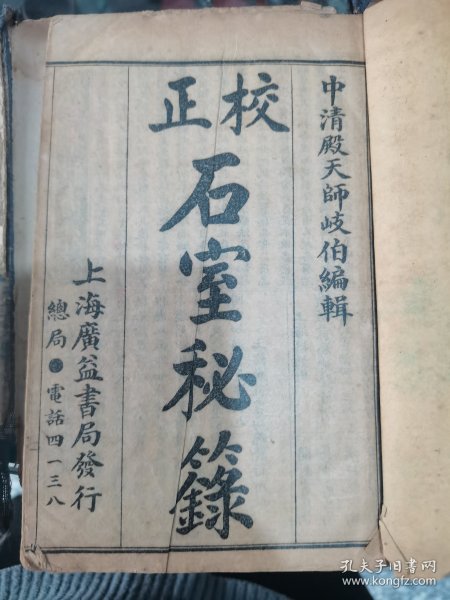 中清殿天師岐伯編輯
校正
石室秘籙
上海廣益書局發行
總局電話四一三八
孔夫子旧书网
www.kongfz.com